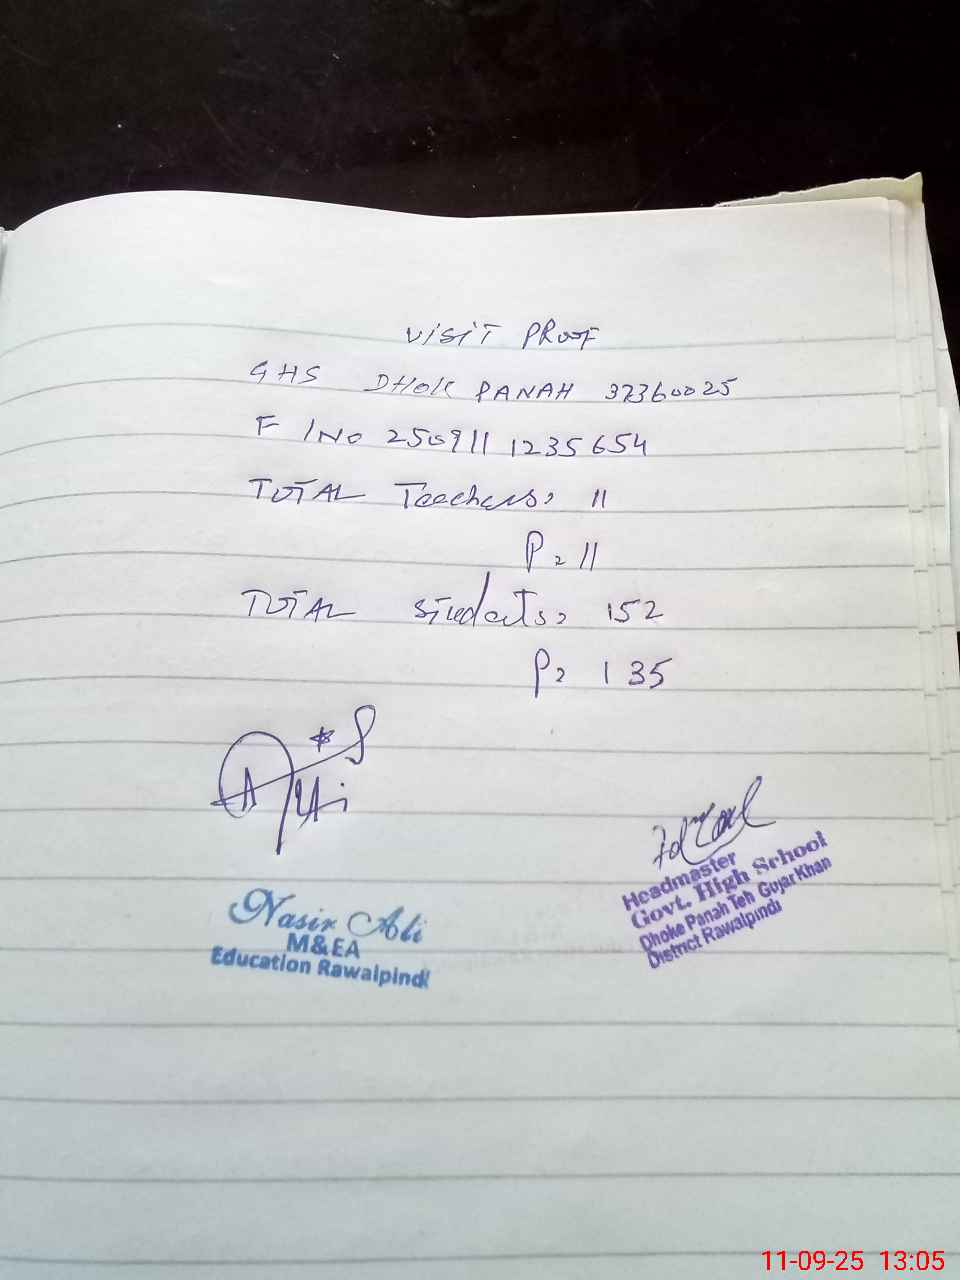 VISIT PROOF
GHS DHOK PANAH 37360025
F INo 250911 1235654
TOTAL Teachers: 11
P = 11
TOTAL students = 152
P = 135
Nasir Ali
M&EA
Education Rawalpindi
Headmaster
Govt. High School
Dhoke Panah Teh Gujar Khan
District Rawalpindi
11-09-25 13:05